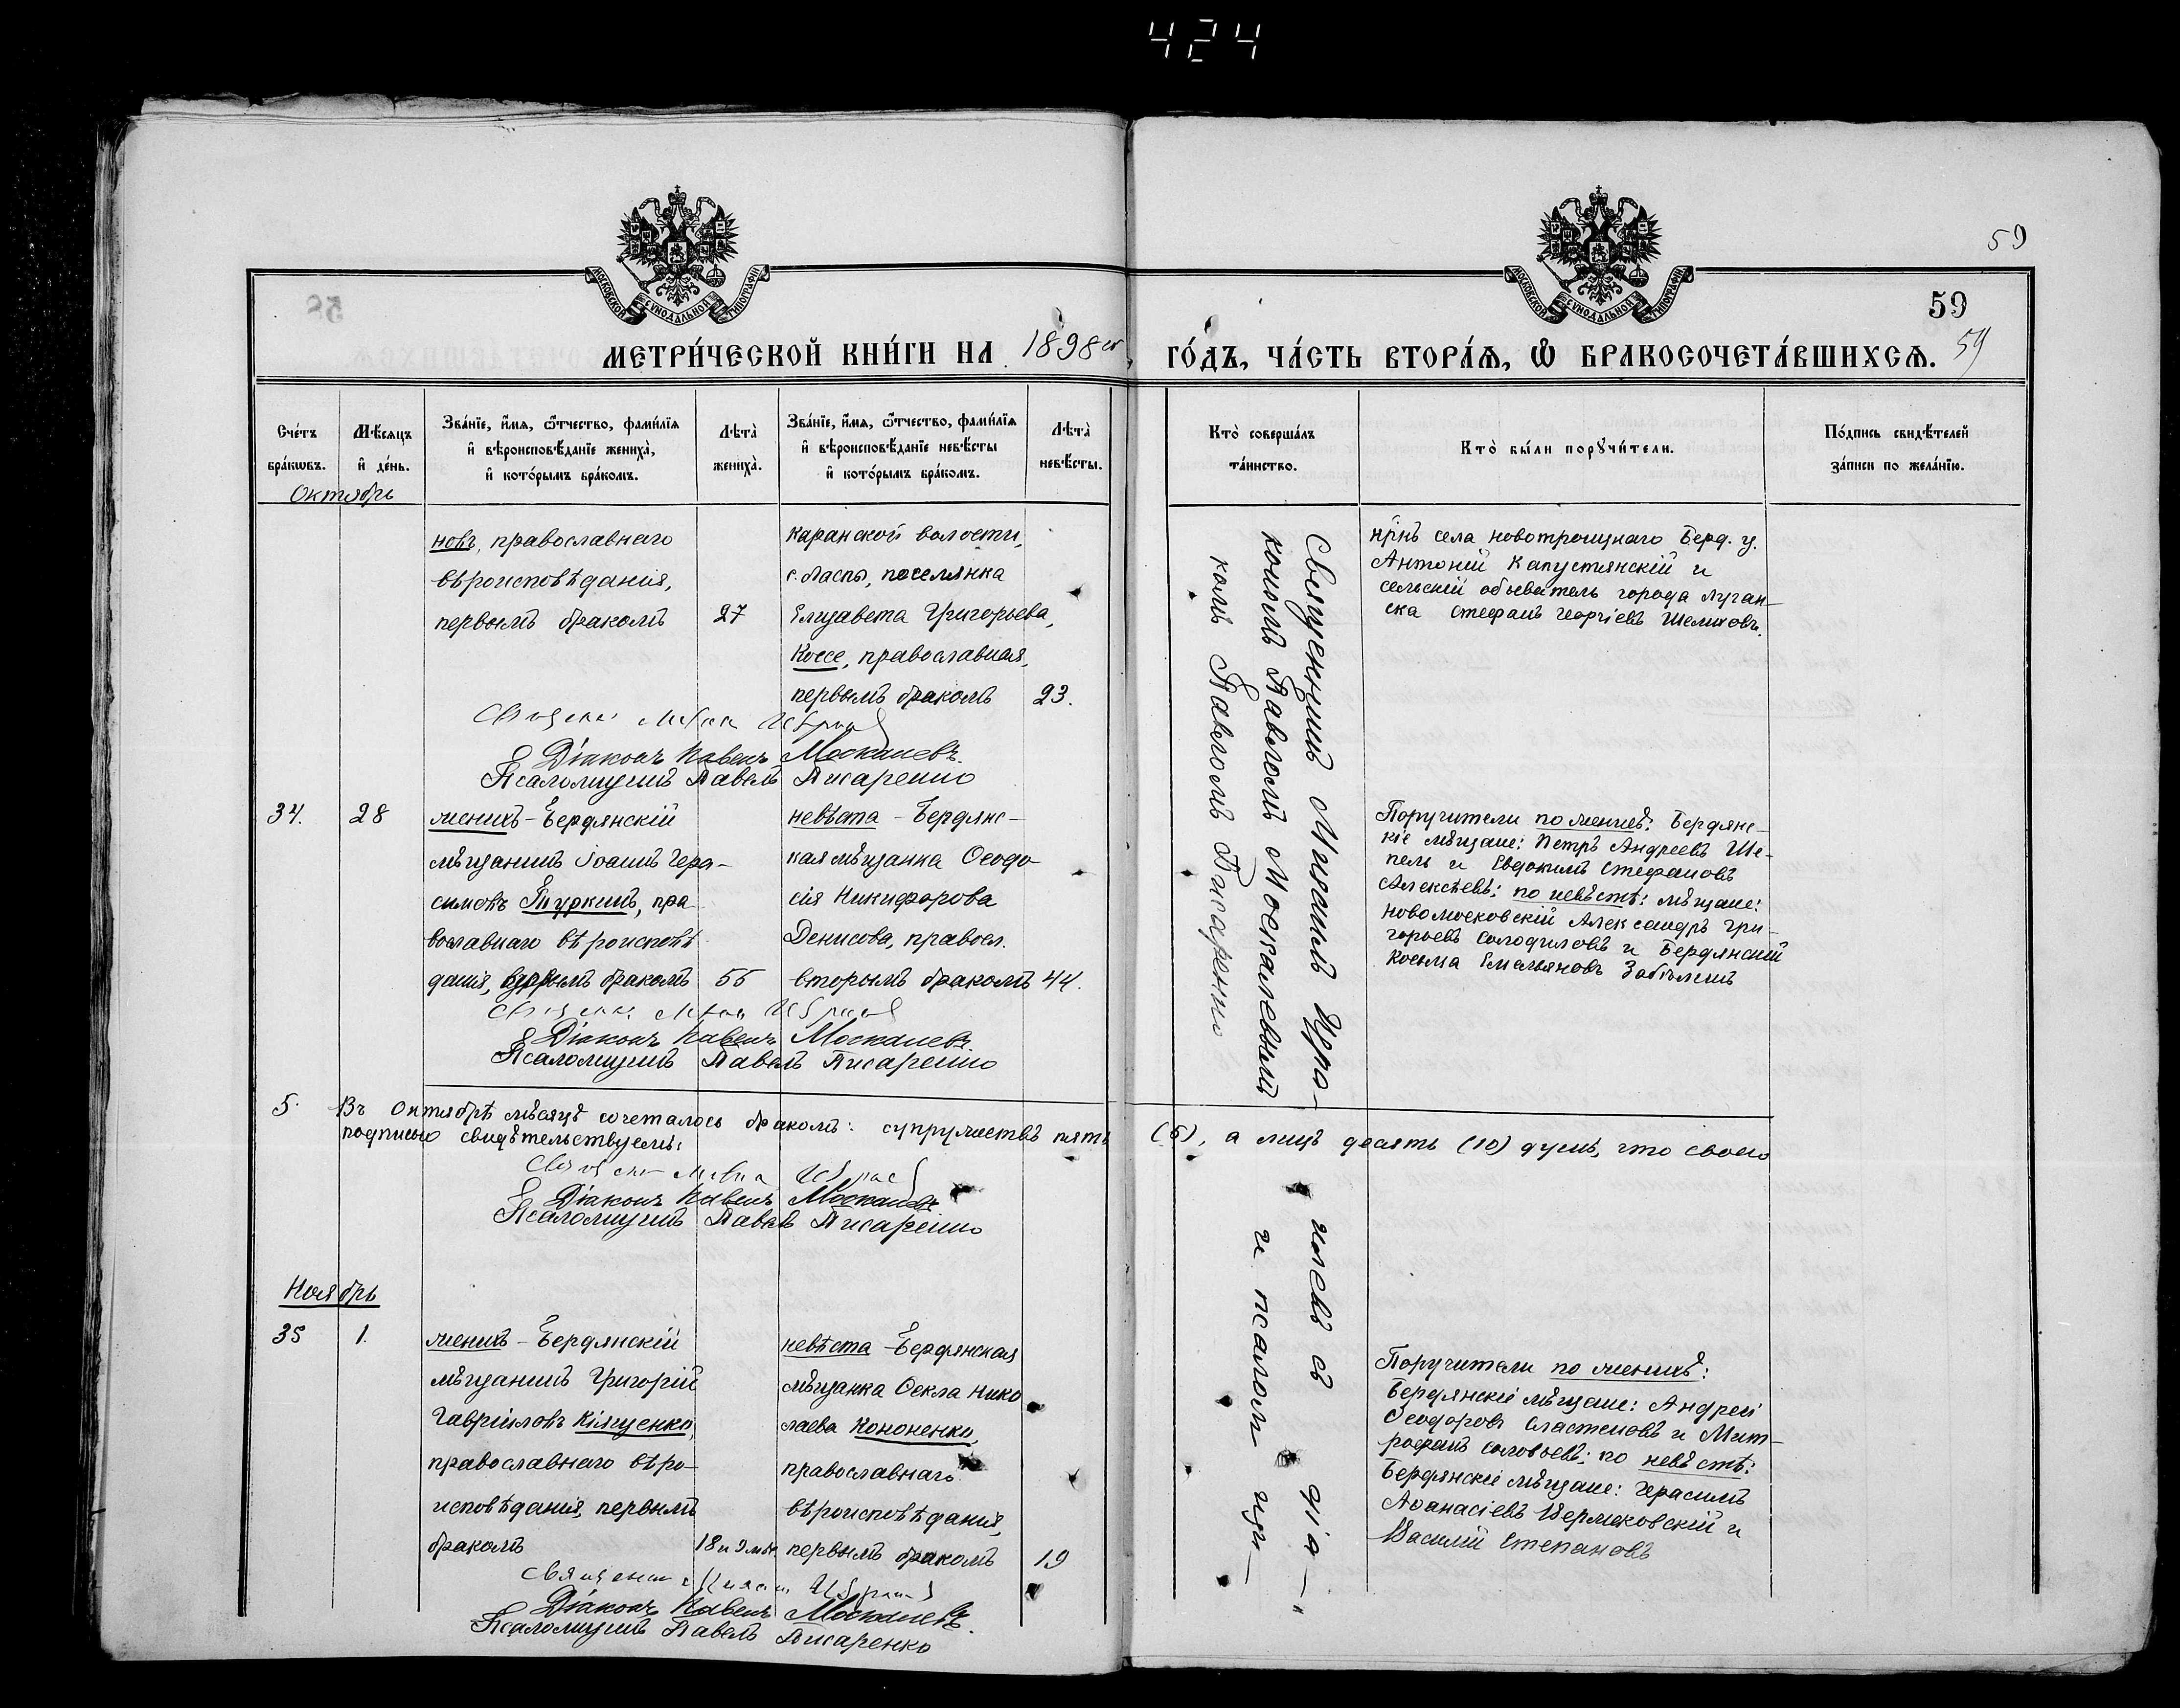 424
59
МОСКОВСКОЙ СѴНОДАЛЬНОЙ ТИПОГРАФІИ
МОСКОВСКОЙ СѴНОДАЛЬНОЙ ТИПОГРАФІИ
59
МЕТРИ́ЧЕСКОЙ КНИ́ГИ НА 1898 ГО́ДЪ, ЧА́СТЬ ВТОРА́Ѧ, Ѽ БРАКОСОЧЕТА́ВШИХСѦ. 59
Сче́тъ бра́кѡвъ.
Мѣ́сяцъ и҆ де́нь.
Зва́нїе, и҆́мѧ, ѻ҆́тчество, фами́лїѧ и҆ вѣроисповѣ́данїе жениха̀, и҆ кото́рымъ бра́комъ.
Лѣта̀ жениха̀.
Зва́нїе, и҆́мѧ, ѻ҆́тчество, фами́лїѧ и҆ вѣроисповѣ́данїе невѣ́сты и҆ кото́рымъ бра́комъ.
Лѣта̀ невѣ́сты.
Кто̀ соверша́лъ та́инство.
Кто̀ бы́ли порꙋчи́тели.
По́дпись свидѣ́телей за́писи по жела́нїю.
Октябрь
новъ, православнаго
вѣроисповѣданія,
первымъ бракомъ
27
каранской волости,
с. Ласпы, поселянка
Елизавета Григорьева,
Коссе, православная,
первымъ бракомъ
23.
села Новотроицкаго Берд. у.
Антоній Капустянскій и
сельскій обыватель города Луган-
ска Стефанъ Георгіевъ Шелиховъ.
Діаконъ Павелъ Москалевъ.
Псаломщикъ Павелъ Писаренко
34.
28
женихъ - Бердянскій
мѣщанинъ Іоаннъ Гера-
симовъ Туркинъ, пра-
вославнаго вѣроисповѣ-
данія, вторымъ бракомъ
55
невѣста - Бердянс-
кая мѣщанка Ѳеодо-
сія Никифорова
Денисова, правосл.
вторымъ бракомъ
44.
Поручители по женихѣ: Бердянс-
кіе мѣщане: Петръ Андреевъ Ше-
пель и Евдокимъ Стефановъ
Алексѣевъ; по невѣстѣ: мѣщане:
Новомосковскій Александръ Гри-
горьевъ Солодиловъ и Бердянскій
Косьма Емельяновъ
Діаконъ Павелъ Москалевъ.
Псаломщикъ Павелъ Писаренко
5.
Въ Октябрѣ мѣсяцѣ сочеталось бракомъ: супружествъ пять (5), а лицъ десять (10) душъ, что своею
подписью свидѣтельствуемъ:
Діаконъ Павелъ Москалевъ
Псаломщикъ Павелъ Писаренко
Ноябрь
35
1.
женихъ - Бердянскій
мѣщанинъ Григорій
Гавріиловъ Клященко,
православнаго вѣро-
исповѣданія, первымъ
бракомъ
18 и 9 мѣс
невѣста - Бердянская
мѣщанка Ѳекла Нико
лаева Кононенко,
православнаго
вѣроисповѣданія,
первымъ бракомъ
19
Поручители по женихѣ:
Бердянскіе мѣщане: Андрей
Ѳеодоровъ Сластеновъ и Мит-
рофанъ Соловьевъ; по невѣстѣ:
Бердянскіе мѣщане: Герасимъ
Аѳанасіевъ Вержековскій и
Василій Степановъ
Діаконъ Павелъ Москалевъ.
Псаломщикъ Павелъ Писаренко
Священникъ
кономъ Павломъ Москалевымъ и псаломщи-
комъ Павломъ Писаренко